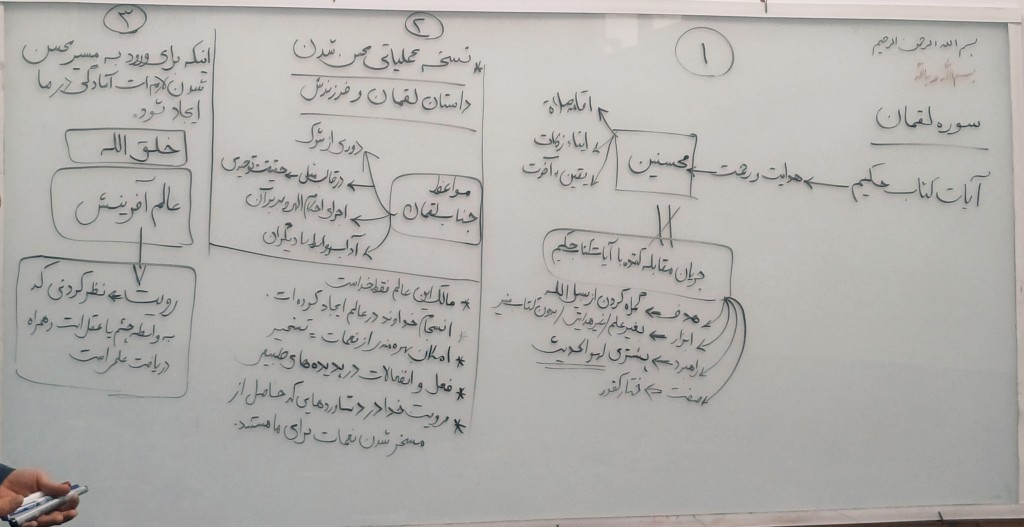 بسم الله الرحمن الرحیم
بسم الله و بالله
سوره لقمان
۱
آیات کتاب حکیم ← هدایت و رحمت ← محسنین
اقامه صلاة
ایتاء زکات
یقین به آخرت
جریان مقابله کننده با آیات کتاب حکیم
هدف ← گمراه کردن از سبیل الله
ابزار ← بغیر علم / غیر هدایتی / بدون کتاب منیر
راهبرد ← یشتری لهو الحدیث
صفت ← ختار کفور
۲
* نسخه عملیاتی محسن شدن
داستان لقمان و فرزندش
مواعظ
جناب لقمان
دوری از شرک
در قالب ← حقیقت توحیدی
اجرای احکام الهی و صبر بر آن
آداب روابط با دیگران
* مالک این عالم فقط خداست
* انسجام خداوند در عالم ایجاد کرده است.
* امکان بهره مندی از نعمات ← تسخیر
* فعل و انفعالات در پدیده های طبیعی
* رویت خدا در دستاوردهایی که حاصل از
مسخر شدن نعمات برای ما هستند.
۳
اینکه برای ورود به مسیر محسن
شدن لازم است آمادگی در ما
ایجاد شود.
خلق الله
عالم آفرینش
رویت ← نظر کردنی که
به واسطه چشم یا عقل است و همراه
دریافت علم است